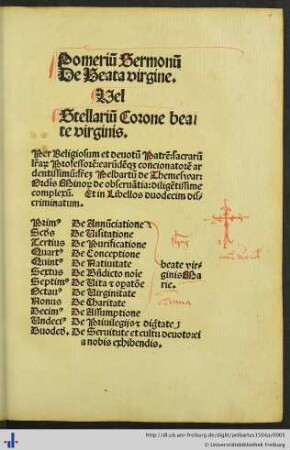 Pomeriū Sermonū
De Beata virgine.
Uel
Stellariū Corone bea-
te virginis.
Per Religiosum et deuotū Patrē: sacrarū
Professorē: earūdēqȝ concionatorē ar
dentissimū: Pelbartū de Themeswar:
Ordis Minoꝝ de obseruātia: diligētissime
complexū. Et in Libellos duodecim dis
criminatum.
Primꝰ De Annūciatione
Scds De Uisitatione
Tertius De Purificatione
Quartꝰ De Conceptione
Quintꝰ De Natiuitate beate vir
Sextus De Bñdicto noīe ginis Ma
Septimꝰ De Uita ⁊ optatōe rie.
Octauꝰ De Uirginitate
Nonus De Charitate
Decimꝰ De Assumptione
Undeciꝰ De Priuilegijs ⁊ digtate
Duodeꝰ. De Seruitute et cultu deuotori
a nobis exhibendis.
http://dl.ub.uni-freiburg.de/diglit/pelbartus1504a/0005
© Universitätsbibliothek Freiburg